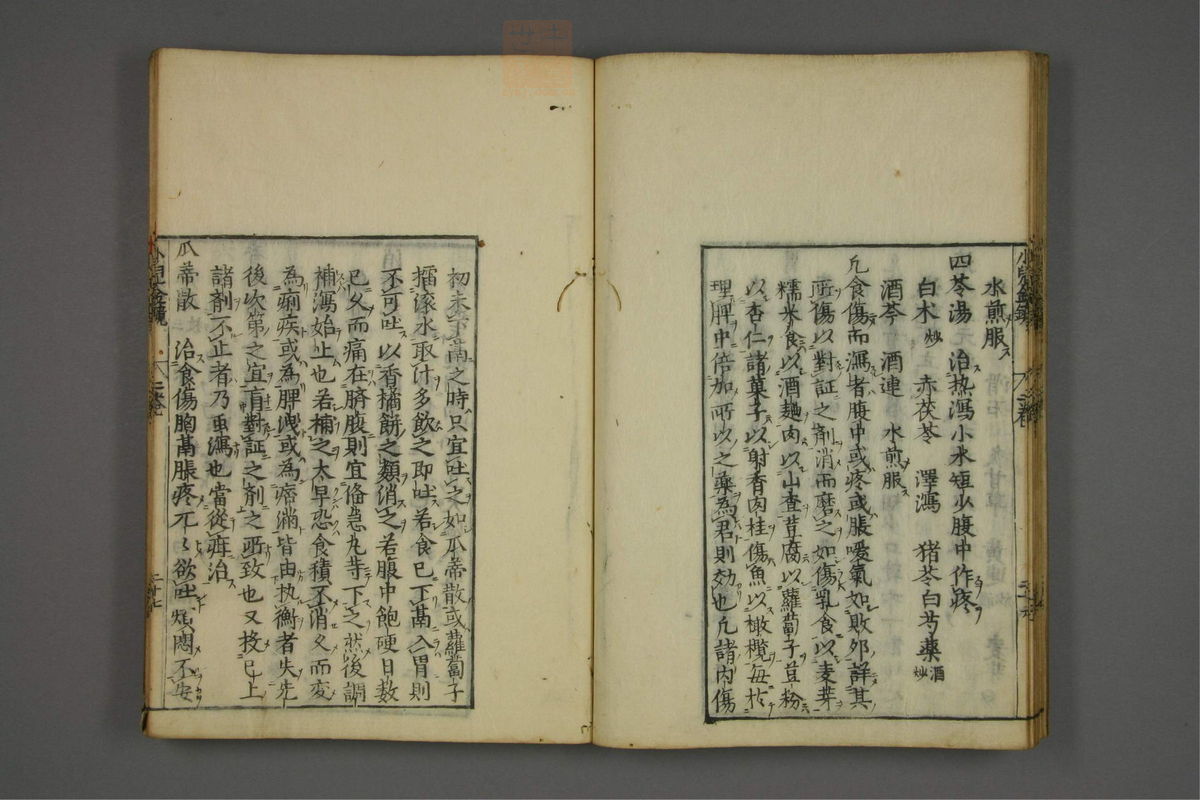 水煎服
四苓湯 治热瀉小水短少腹中作疼
白朮炒 赤茯苓 澤瀉 猪苓白芍藥酒炒
酒芩 酒連 水煎服
凢食傷而瀉者腹中或疼或脹噯氣如敗卵詳其
所傷以對証之剤消而磨之如傷乳食以麦芽
糯米食以酒麯肉以山査荳腐以蘿蔔子荳粉
以杏仁諸菓子以射香肉桂傷魚以橄欖毎扵
理脾中倍加所以之藥為君則効也凢諸肉傷
初未下鬲之時只宜吐之如瓜蒂散或蘿蔔子
擂滚水取汁多飲之即吐若食已下鬲入胃則
不可吐以香橘餅之類消之若腹中飽硬日数
已久而痛在臍腹則宜俻急丸等下之然後調
補瀉始止也若補之太早恐食積不消久而変
為痢疾或為脾洩或為痞滿皆由执衡者失先
後次第之宜有對証之剤之所致也又按已上
諸剤不止者乃虫瀉也當從疳治
瓜蒂散 治食傷胸鬲脹疼兀兀欲吐煩悶不安